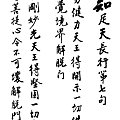 知足天長行第七句
勇健力天王得開示一切佛
覺境界解脫門
剛妙光天王得堅固一切
菩提心令不可壞解脫門